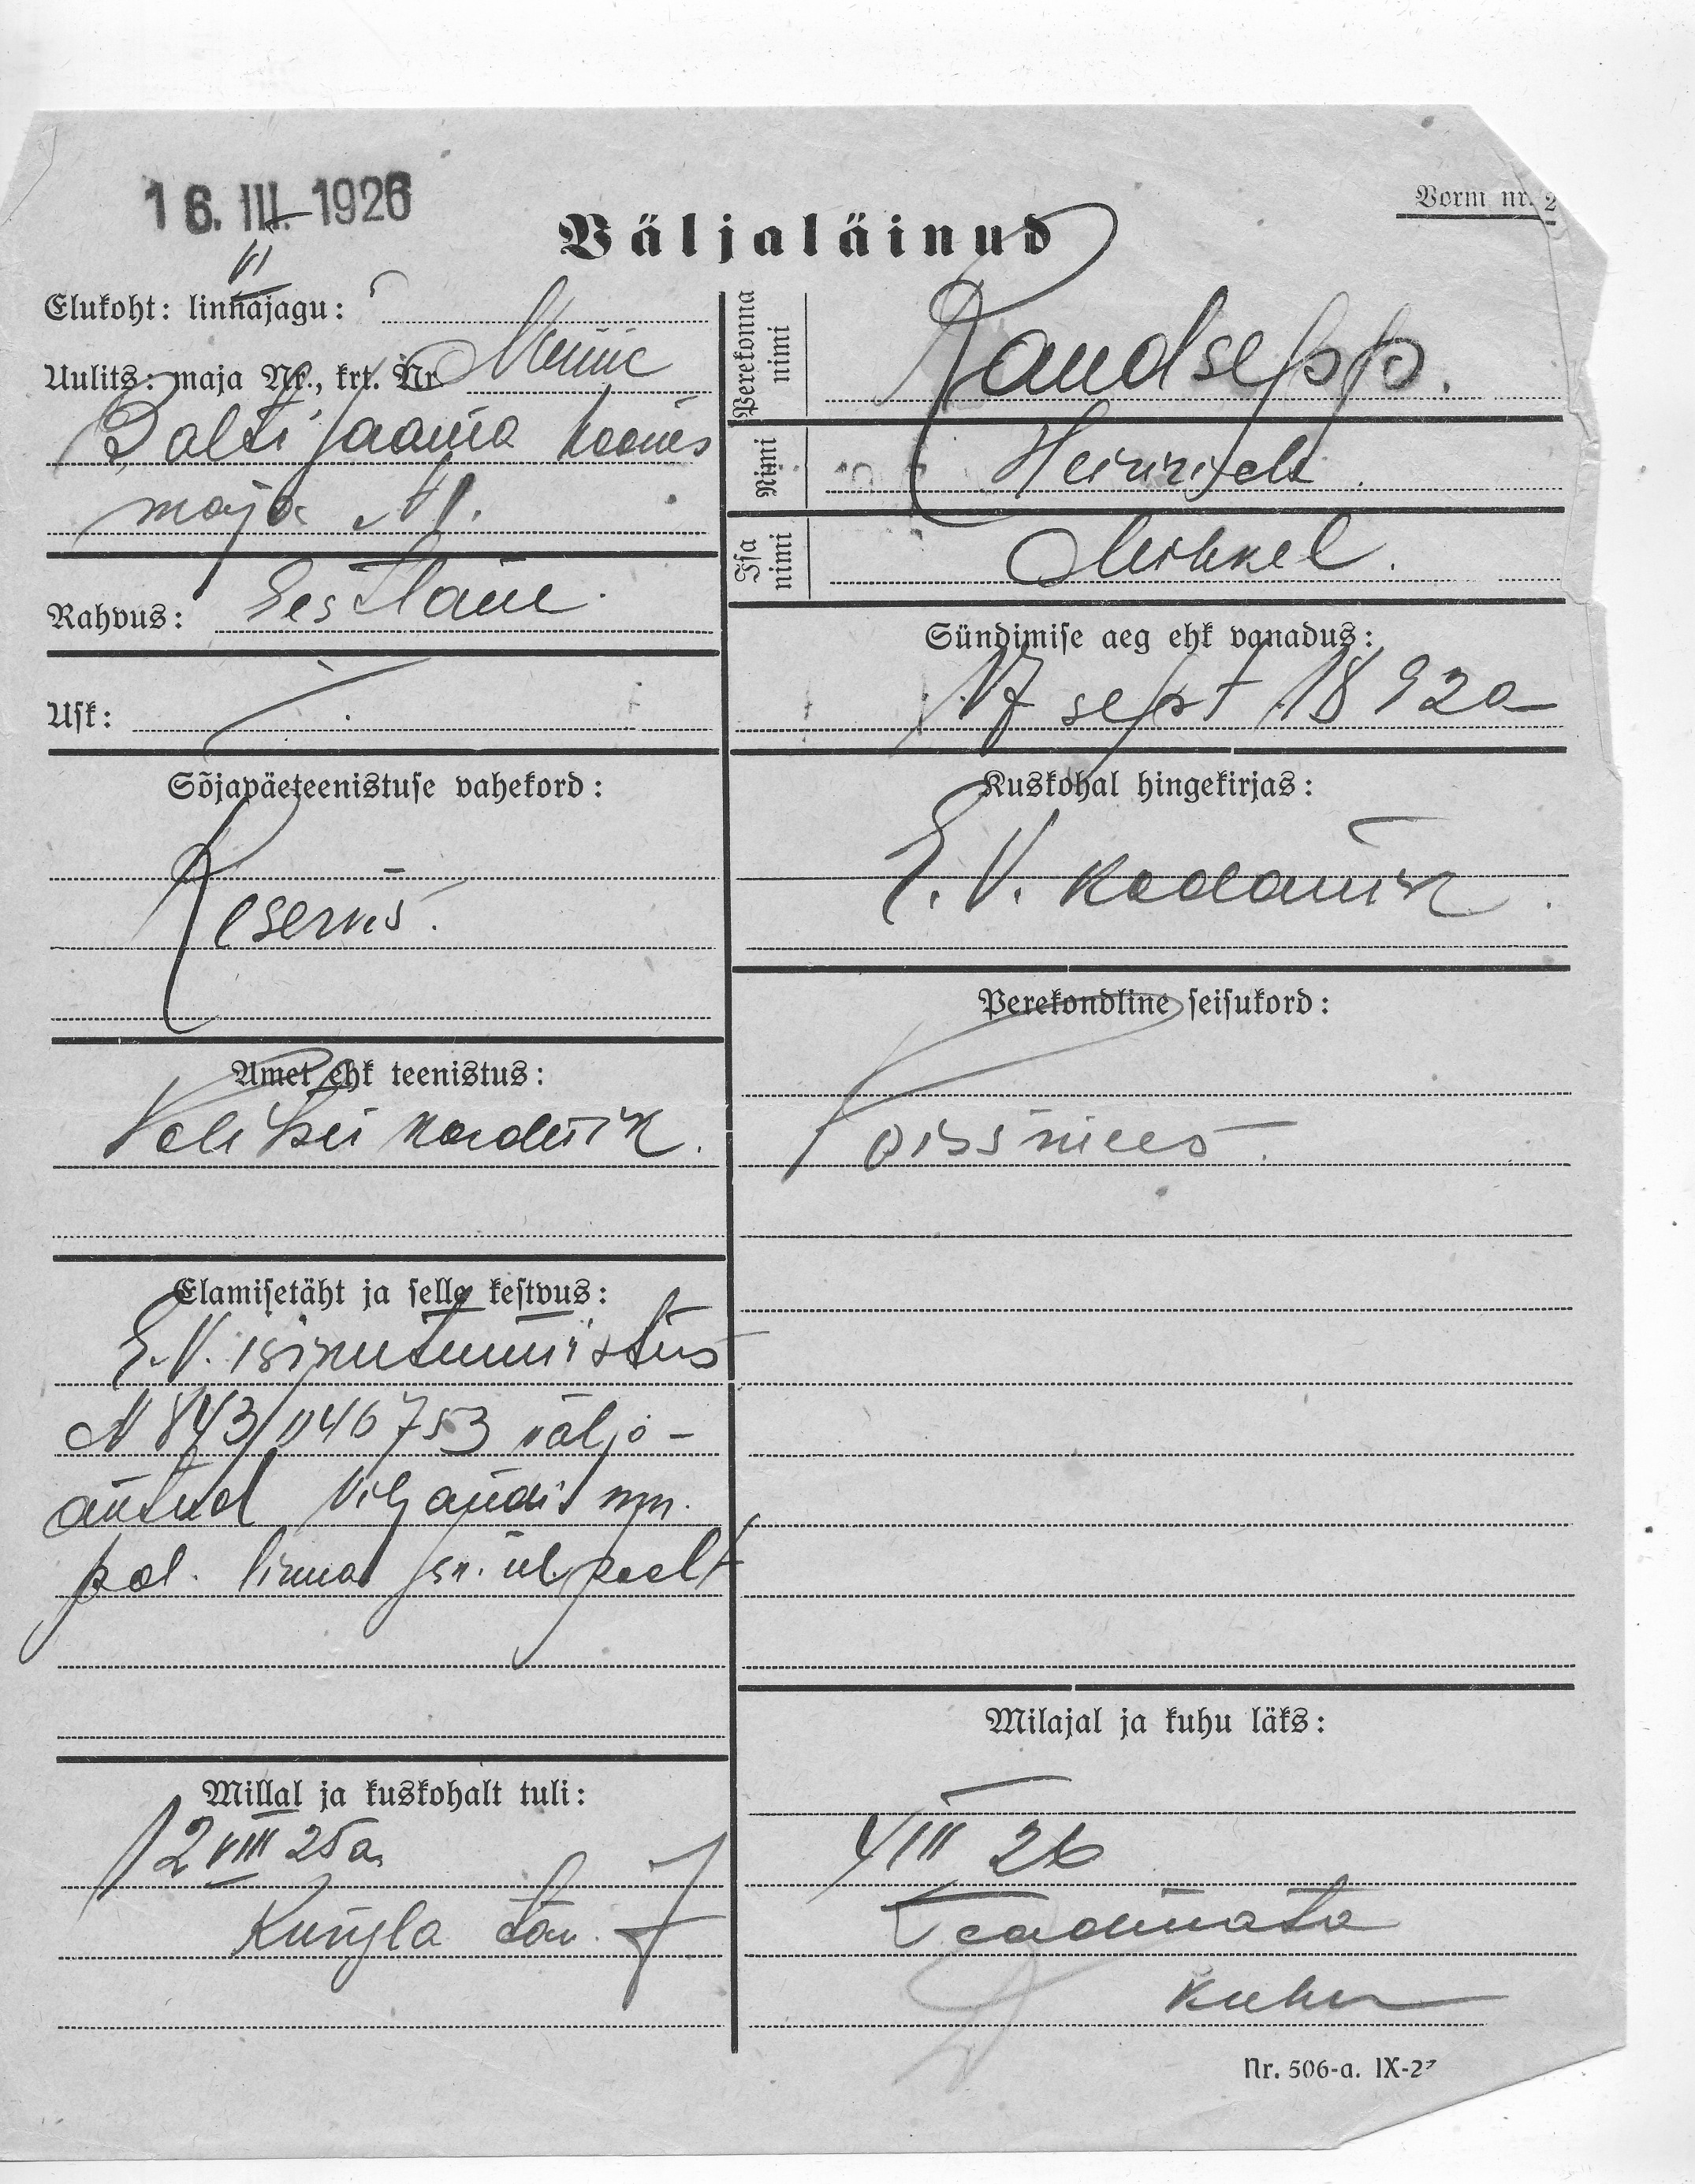 16. III. 1926
Vorm nr. 2
Väljaläinud
Elukoht: linnajagu:
VI
Uulits: maja Nr., krt. Nr.
Balti jaama hoones
maja №1.
Rahvus: Eestlane.
Usk:
Sõjaväeteenistuse vahekord:
Reservis.
Amet ehk teenistus:
Politsei kordnik.
Elamisetäht ja selle kestvus:
E.V. isikutunnistus
N 843/1146753 välja-
antud Viljandi mm.
pol. linna jsk. ül. poolt
Millal ja kuskohalt tuli:
12 VIII 25 a.
Kungla tän. 7
Perekonna nimi
Raudsepp.
Nimi
Heinrich.
Isa nimi
Mihkel.
Sündimise aeg ehk vanadus:
17 sept 1892 a
Kuskohal hingekirjas:
E.V. kodanik.
Perekondline seisukord:
Poissmees.
Milajal ja kuhu läks:
1/III 26
Teadmata
kuhu
Nr. 506-a. IX-2